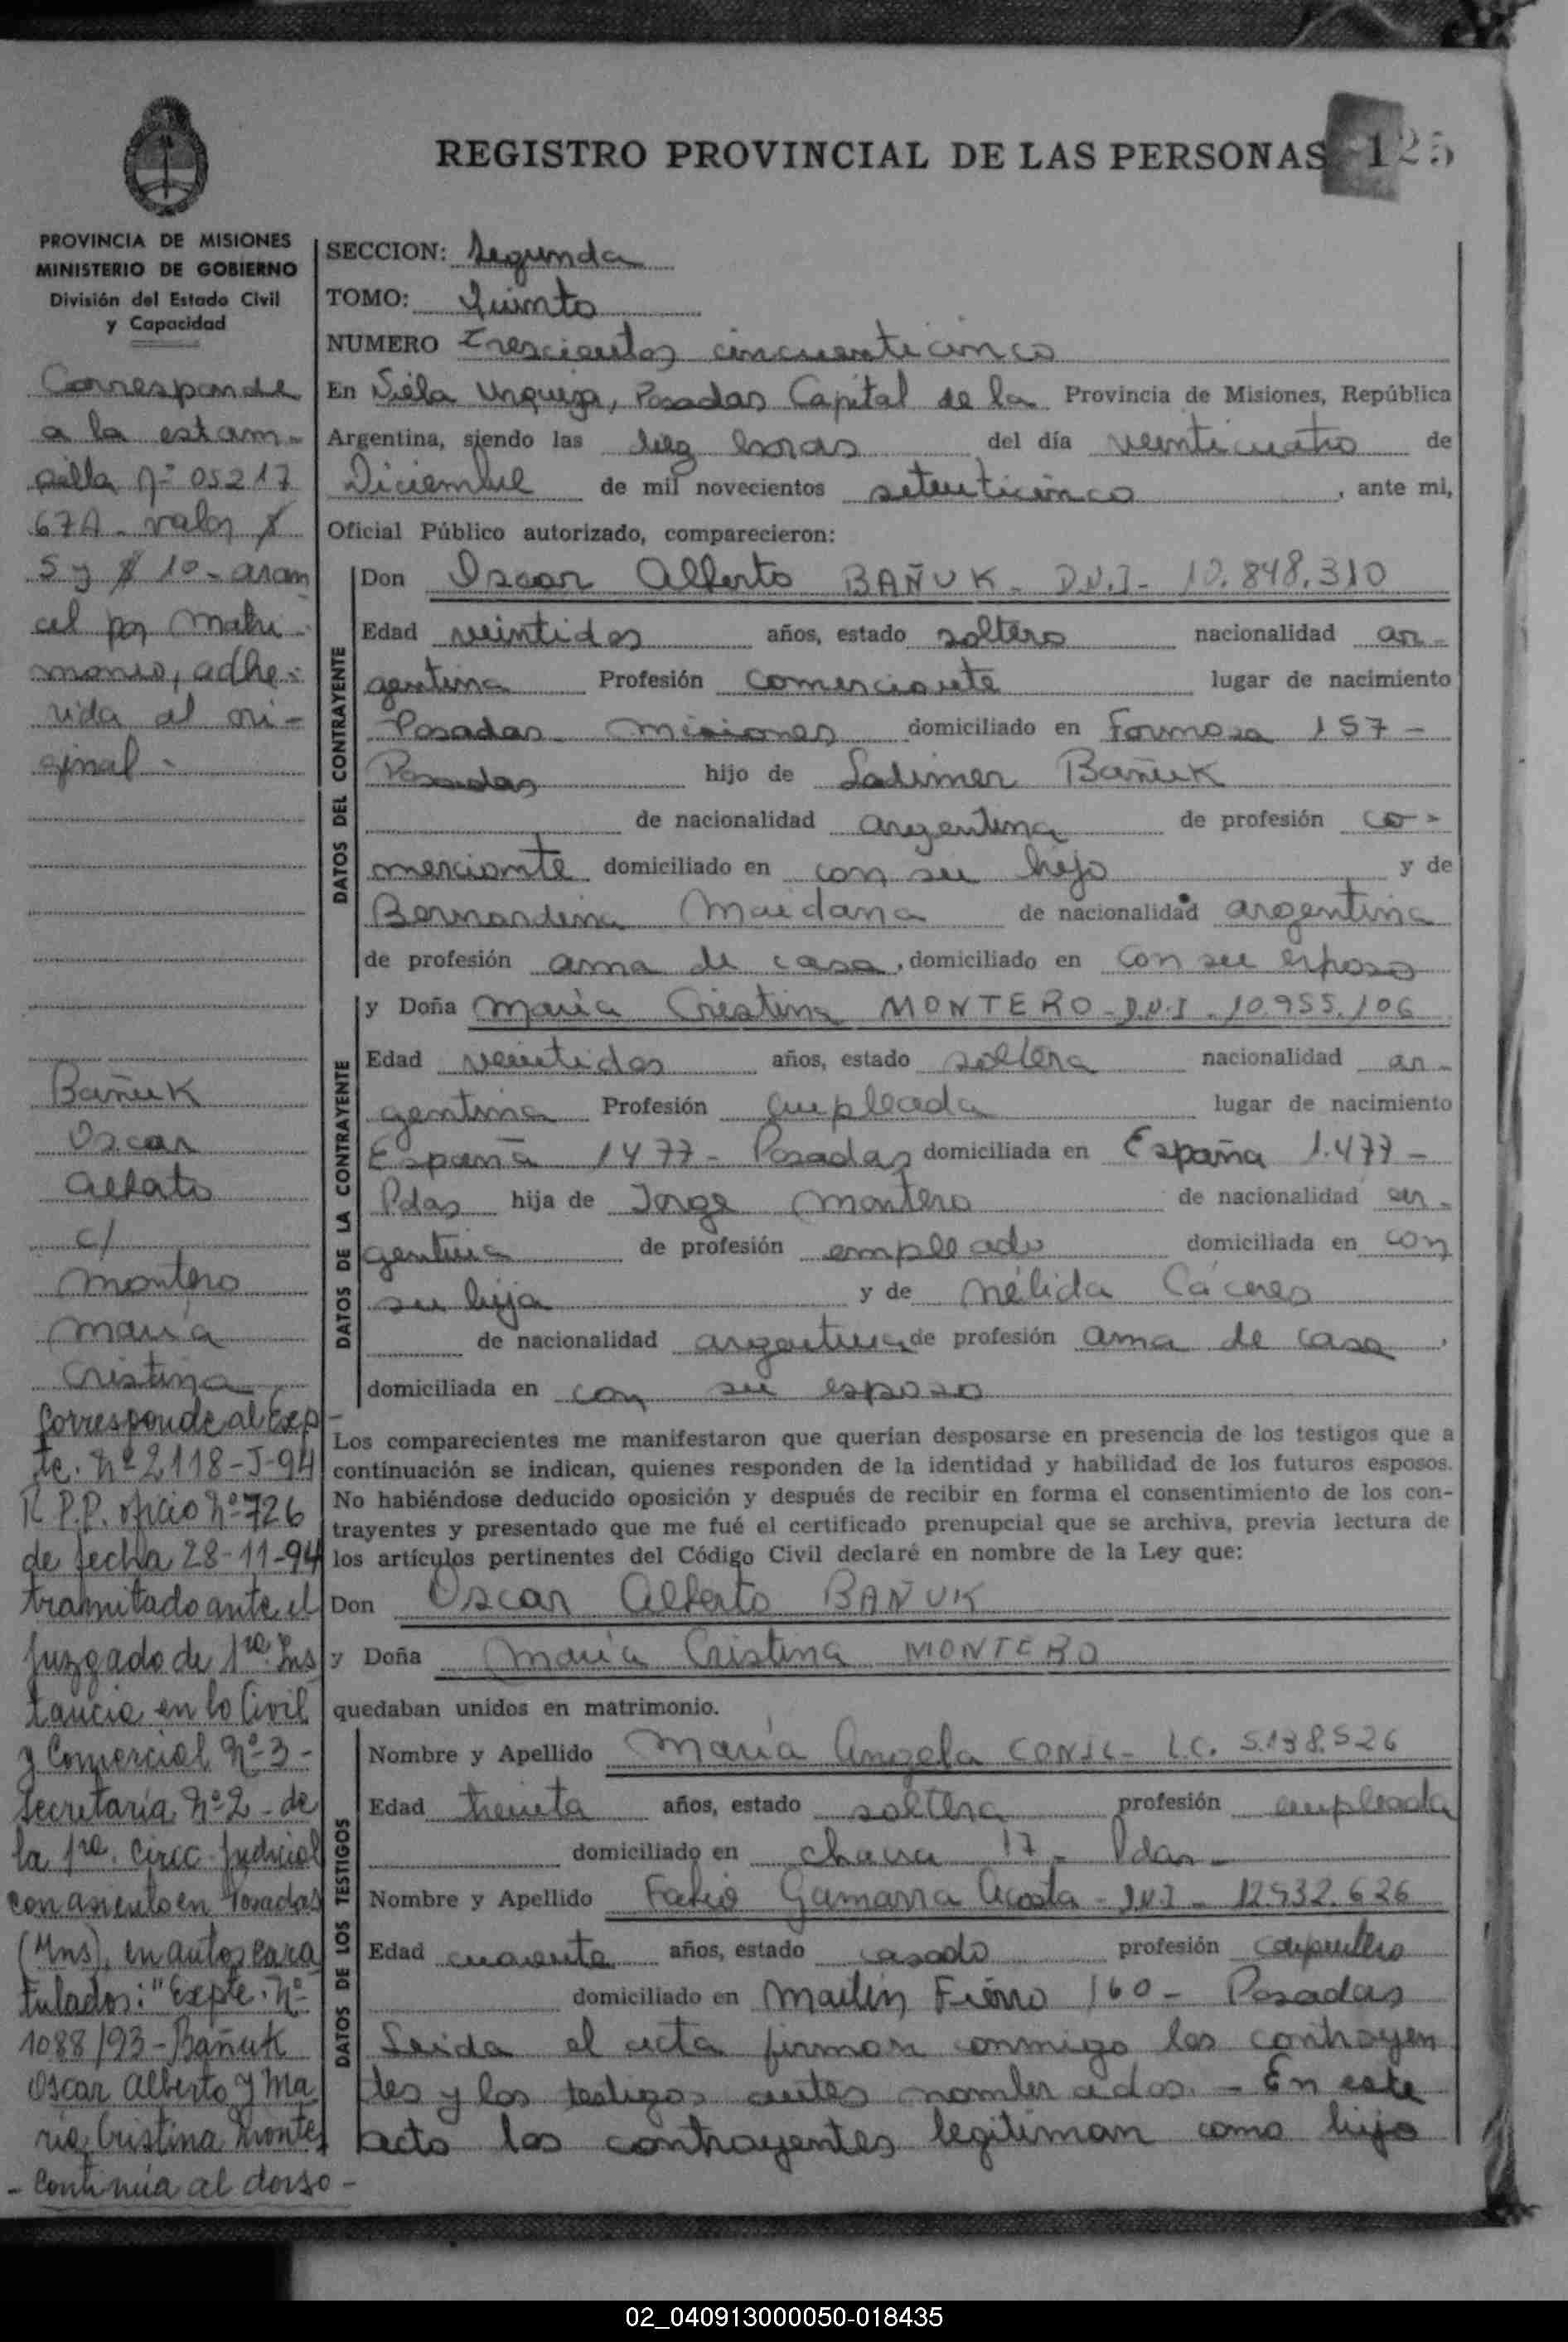 REGISTRO PROVINCIAL DE LAS PERSONAS 125
PROVINCIA DE MISIONES
MINISTERIO DE GOBIERNO
División del Estado Civil
y Capacidad
Corresponde
a la estam-
pilla Nº 05217
67A - valor $
5 y $ 10 - aran
cel por matri-
monio, adhe-
rida al ori-
ginal -
Bañuk
Oscar
Alberto
c/
Montero
María
Cristina
Corresponde al Exp-
te. Nº 2118-J-94
R.P.P. oficio Nº 726
de fecha 28-11-94
tramitado ante el
Juzgado de 1ra. Ins
tancia en lo Civil
y Comercial Nº 3-
Secretaría Nº 2 - de
la 1ra. Circ. Judicial
con asiento en Posadas
(Mns), en autos cara
tulados: "Expte. Nº
1088/93 - Bañuk
Oscar Alberto y Ma
ría Cristina Monte
- Continúa al dorso -
SECCION: Segunda
TOMO: Quinto
NUMERO Trescientos cincuenticinco
En Villa Urquiza, Posadas Capital de la Provincia de Misiones, República
Argentina, siendo las diez horas del día veinticuatro de
Diciembre de mil novecientos setenticinco, ante mi,
Oficial Público autorizado, comparecieron:
DATOS DEL CONTRAYENTE
Don Oscar Alberto BAÑUK - D.N.I - 10.848.310
Edad veintidos años, estado soltero nacionalidad ar-
gentina Profesión comerciante lugar de nacimiento
Posadas - Misiones domiciliado en Formosa 157 -
Posadas hijo de Ladimer Bañuk
de nacionalidad argentina de profesión co-
merciante domiciliado en con su hijo y de
Bernardina Maidana de nacionalidad argentina
de profesión ama de casa, domiciliado en con su esposo
DATOS DE LA CONTRAYENTE
y Doña María Cristina MONTERO - D.N.I. 10.955.106
Edad veintidos años, estado soltera nacionalidad ar-
gentina Profesión empleada lugar de nacimiento
España 1477 - Posadas domiciliada en España 1.477 -
Pdas hija de Jorge Montero de nacionalidad ar-
gentina de profesión empleado domiciliada en con
su hija y de Nélida Cáceres
de nacionalidad argentina de profesión ama de casa,
domiciliada en con su esposo
Los comparecientes me manifestaron que querían desposarse en presencia de los testigos que a
continuación se indican, quienes responden de la identidad y habilidad de los futuros esposos.
No habiéndose deducido oposición y después de recibir en forma el consentimiento de los con-
trayentes y presentado que me fué el certificado prenupcial que se archiva, previa lectura de
los artículos pertinentes del Código Civil declaré en nombre de la Ley que:
Don Oscar Alberto BAÑUK
y Doña María Cristina MONTERO
quedaban unidos en matrimonio.
DATOS DE LOS TESTIGOS
Nombre y Apellido María Angela - L.C. 5.138.526
Edad treinta años, estado soltera profesión empleada
domiciliado en chacra 17 - Pdas -
Nombre y Apellido Gamarra Acosta - D.N.I - 12.932.626
Edad cuarenta años, estado casado profesión carpintero
domiciliado en Martín Fierro 160 - Posadas
Leida el acta firman conmigo los contrayen
tes y los testigos antes nombrados. - En este
acto los contrayentes legitiman como hijo
02_040913000050-018435